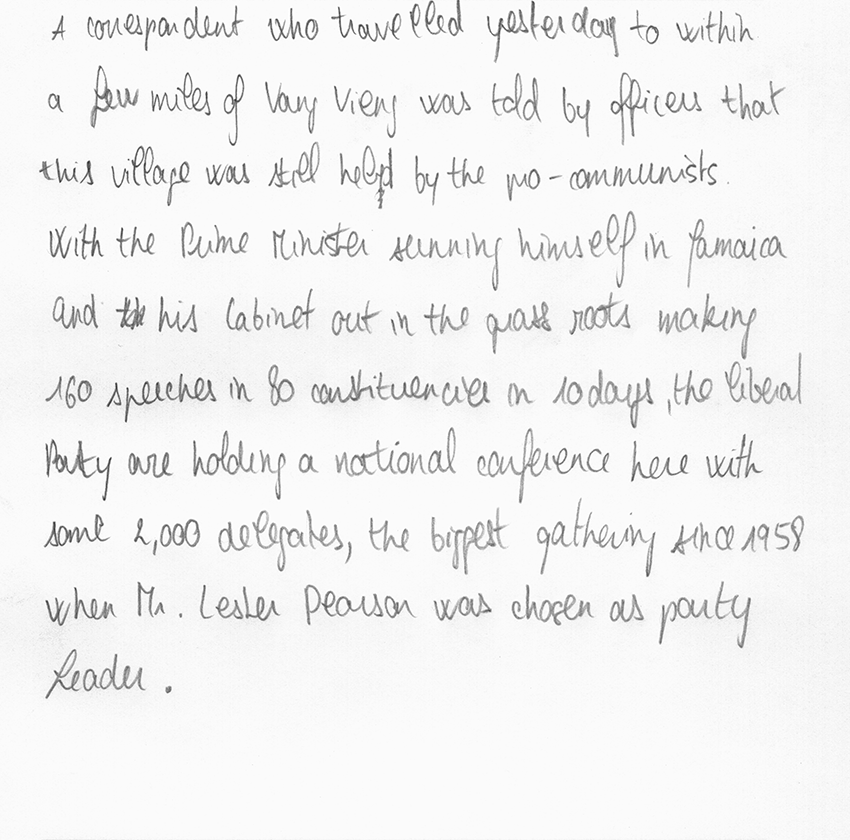 A correspondent who travelled yesterday to within
a few miles of Vang Vieng was told by officers that
this village was still held by the pro-communists.
With the Prime Minister sunning himself in Jamaica
and his Cabinet out in the grass roots making
160 speeches in 80 constituencies in 10 days, the liberal
Party are holding a national conference here with
some 2,000 delegates, the biggest gathering since 1958
when Mr. Lester Pearson was chosen as party
leader.